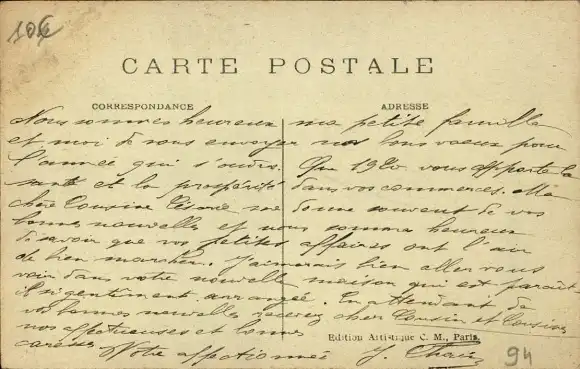 10€
CARTE POSTALE
CORRESPONDANCE
ADRESSE
Nous sommes heureux ma petite famille
et moi de vous envoyer nos bons vœux pour
l'année qui s'ouvre. Que 1920 vous apporte la
santé et la prospérité dans vos commerces. Ma
chère Cousine me donne souvent de vos
bonnes nouvelles et nous sommes heureux
de savoir que vos petites affaires ont l'air
de bien marcher. J'aimerais bien aller vous
voir dans votre nouvelle maison qui est paraît
il si gentiment arrangée. En attendant de
vos bonnes nouvelles recevez cher Cousin et Cousine
nos affectueuses et bonnes
caresses
Votre affectionnée
Edition Artistique C. M., Paris.
94